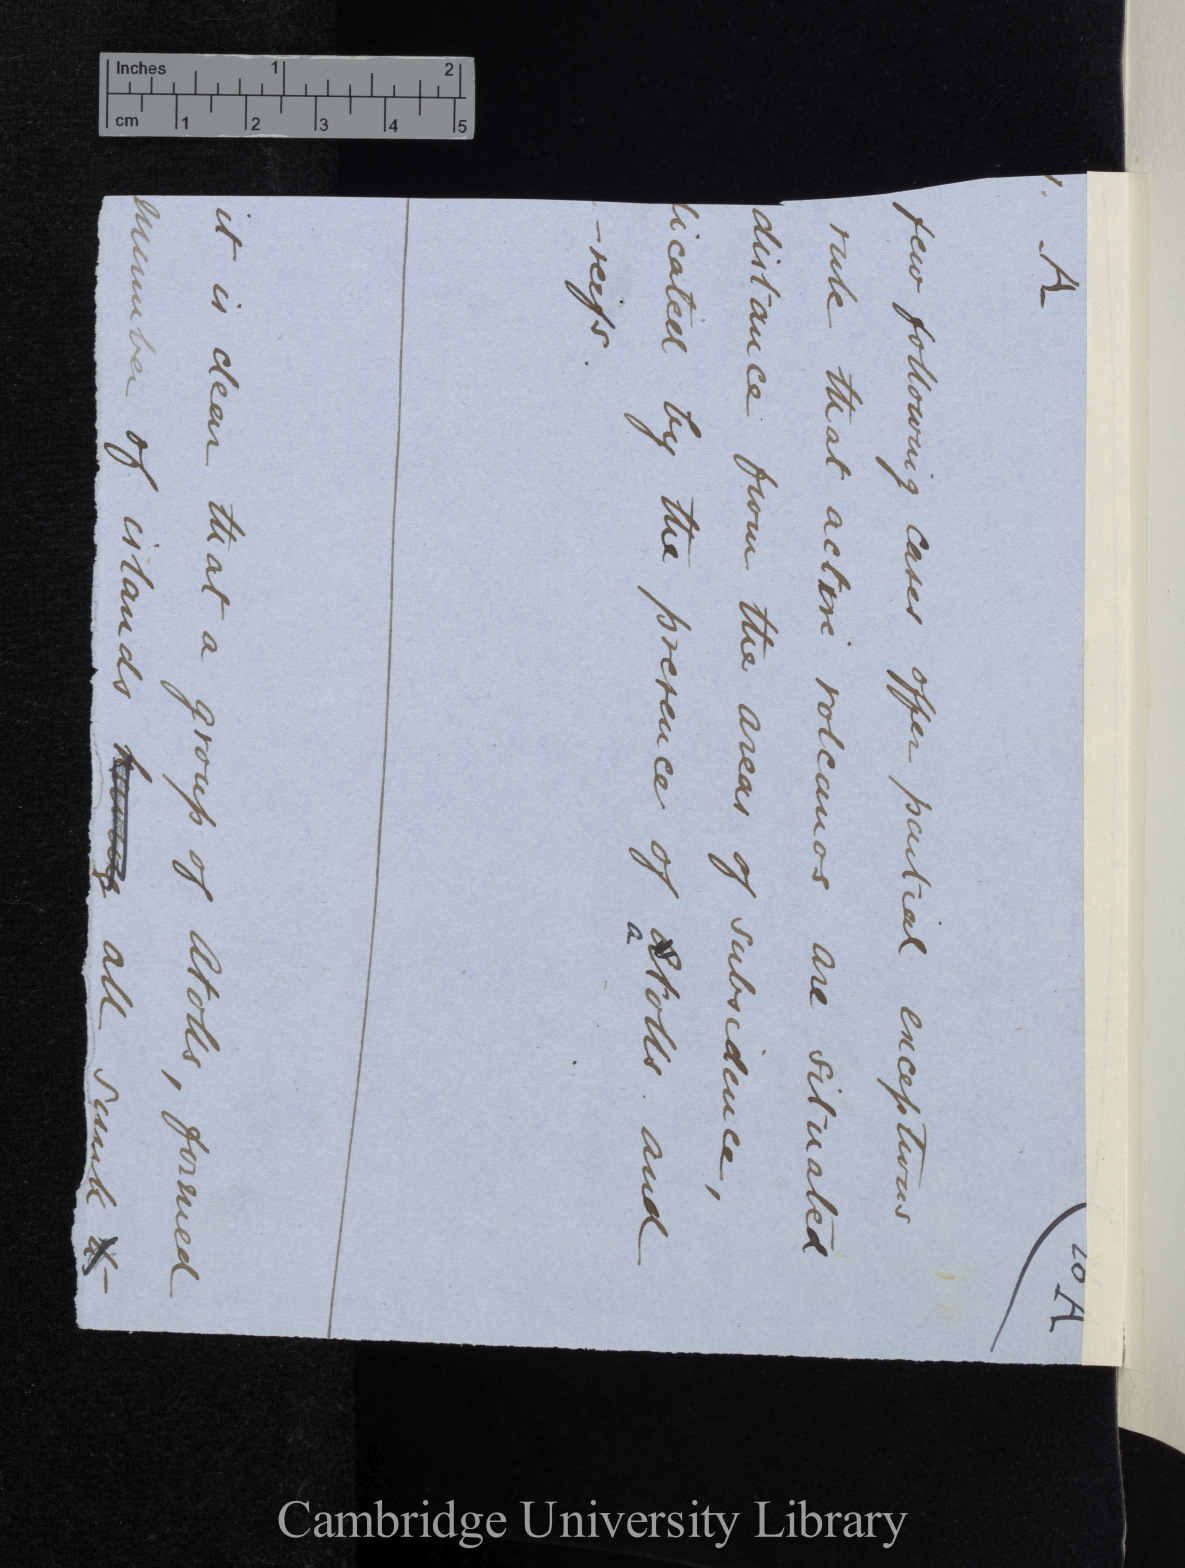 Inches 1 2
cm 1 2 3 4 5
10 A
A
few following cases offer partial exceptions
rule that active volcanos are situated
distance from the areas of subsidence,
licated by the presence of atolls and
a
-reefs.
it is clear that a group of Atolls, formed
number of islands all sunk
Cambridge University Library